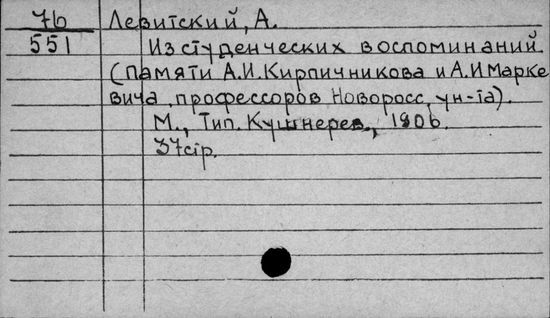 7б Левитский, А.
551 Из студенческих воспоминаний.
(памяти А.И.Кирпичникова и А.И Марке
вича, профессоров Новоросс. ун-та).
М., Тип. Кушнерев., 1906.
37стр.